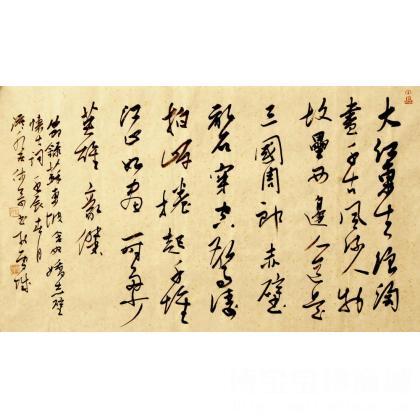 大江東去浪淘
盡千古風流人物
故壘西邊人道是
三國周郎赤壁
亂石穿空驚濤
拍岸捲起千堆
江山如畫一時多少
英雄豪傑
節錄蘇東坡念奴嬌赤壁
懷古詞